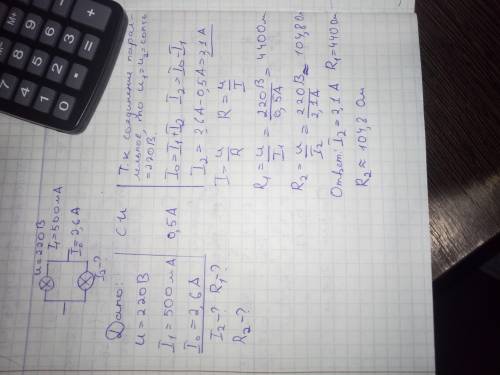 U=220В
I₁=500мА
I₀=2,6А
I₂-?
Дано:
U=220В
I₁=500мА
I₀=2,6А
I₂-? R₁-?
R₂-?
СИ
0,5А
Т.к соединение парал-
лельное, то U₁=U₂=const
=220В.
I₀=I₁+I₂ I₂=I₀-I₁
I₂=2,6А-0,5А=2,1А
I=U/R R=U/I
R₁=U/I₁=220В/0,5А=440Ом
R₂=U/I₂=220В/2,1А≈104,8Ом
Ответ: I₂=2,1А R₁=440Ом
R₂≈104,8Ом
M+
9
8
6
5
3
2
0
+
=